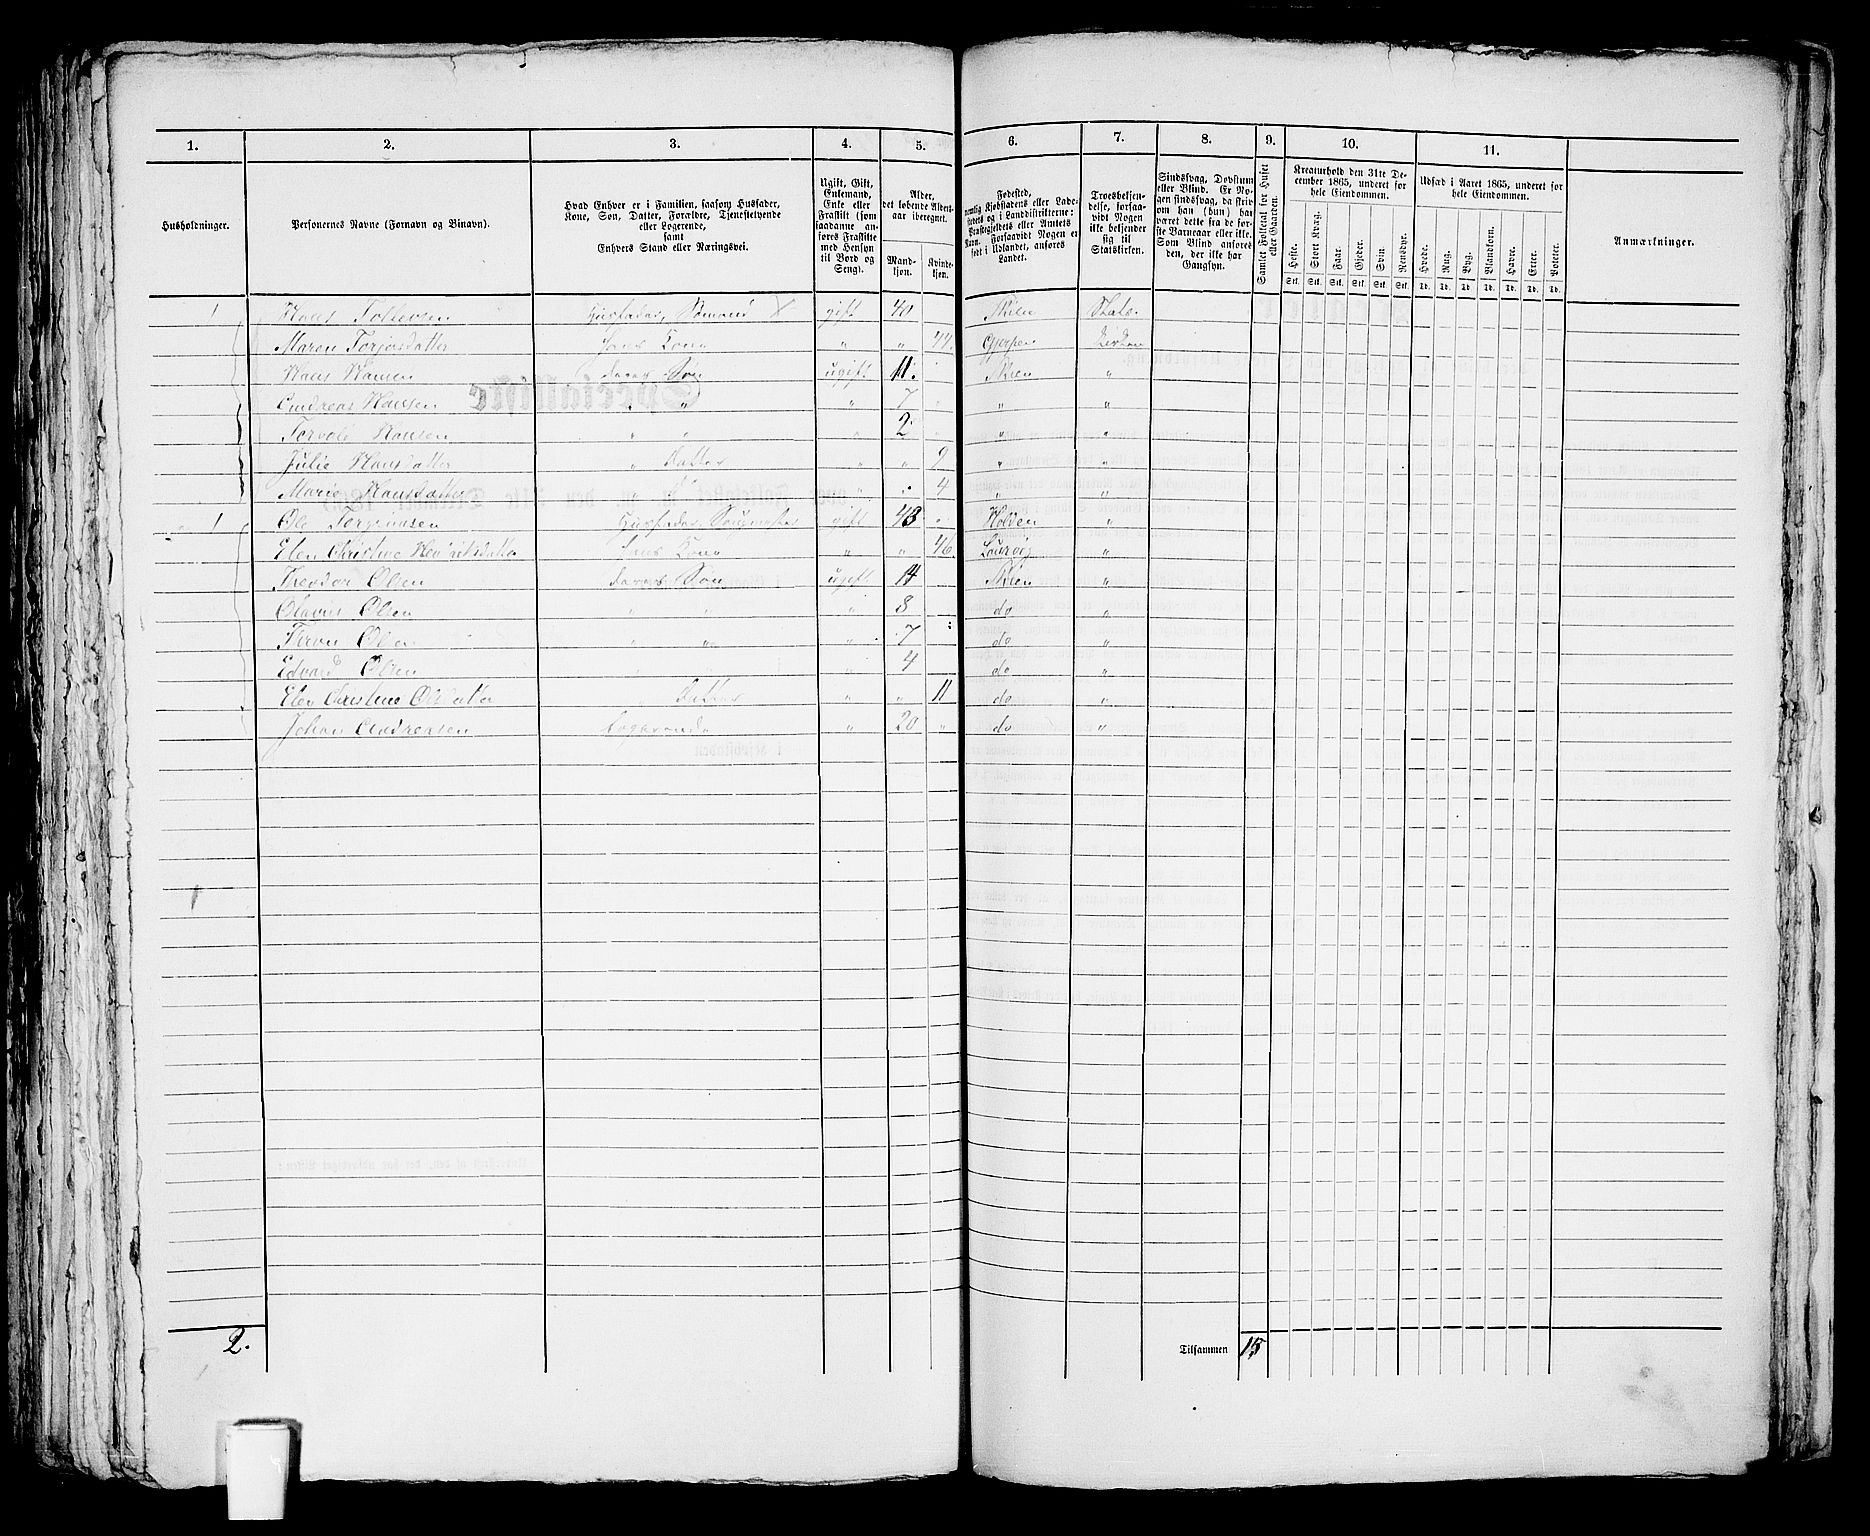 1. 2. 3. 4. 5. 6. 7. 8. 9. 10. 11.
Husholdninger.
Personernes Navne (Fornavn og Binavn).
Hvad Enhver er i Familien, saasom Husfader, Kone, Søn, Datter, Forældre, Tjenestetyende eller Logerende, samt Enhvers Stand eller Næringsvei.
Ugift, Gift, Enkemand, Enke eller Fraskilt (som saadanne anføres Fraskilte med Hensyn til Bord og Seng).
Alder, det løbende Aldersaar iberegnet.
Mandkjøn. Kvindekjøn.
Fødested, nemlig Kjøbstadens eller Ladestedets og i Landdistrikterne: Præstegjeldets eller Annexets Navn. Forsaavidt Nogen er født i Udlandet, anføres Landet.
Troesbekjendelse, forsaavidt Nogen ikke bekjender sig til Statskirken.
Sindssvag, Døvstum eller Blind. Er Nogen sindssvag, da skrives om han (hun) har været dette fra de første Barneaar eller ikke. Som Blind anføres den, der ikke har Gangsyn.
Samlet Folketal for Huset eller Gaarden.
Kreaturhold den 31te December 1865, underet for hele Eiendommen.
Heste. Stort Kvæg. Faar. Gjeder. Svin. Rensdyr.
Stk. Stk. Stk. Stk. Stk. Stk.
Udsæd i Aaret 1865, underet for hele Eiendommen.
Hvede. Rug. Byg. Blandkorn. Havre. Erter. Poteter.
Td. Td. Td. Td. Td. Td. Td.
Anmærkninger.
1 Hans Tollevsen Husfader, Sømand X gift 40 Skien Stats
Maren Torjusdatter Hans Kone " " 44. Gjerpen Kirken
Hans Hansen Deres Søn ugift 11. Skien "
Andreas Hansen " " " 7 " " "
Torvald Hansen " " " 2 " " "
Julie Hansdatter " Datter " " 9 " "
Marie Hansdatter " " " 4 " "
1 Ole Husfader gift 43 Holden "
Elen Christine Hans Kone " " 46. "
Theodor Olsen Deres Søn ugift 14 Skien "
Olavus Olsen " " " 8 do "
Olsen " " " 7 do "
Edvard Olsen " " " 4 do "
Elen Christine Olsdatter Datter " " 11 do "
Johan Andreasen Logerende " 20 " do "
2.
Tilsammen 15